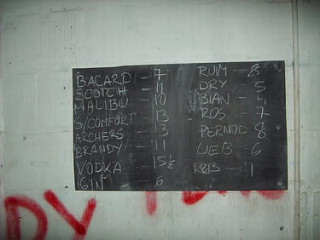 BACARDI - 7
SCOTCH - 11
MALIBU - 10
S/COMFORT - 13
ARCHERS - 13
BRANDY - 11
VODKA - 15½
GIN - 6
RUM - 8
DRY - 5
ROS - 7
PERNOD 8
- 6
- 1
DY